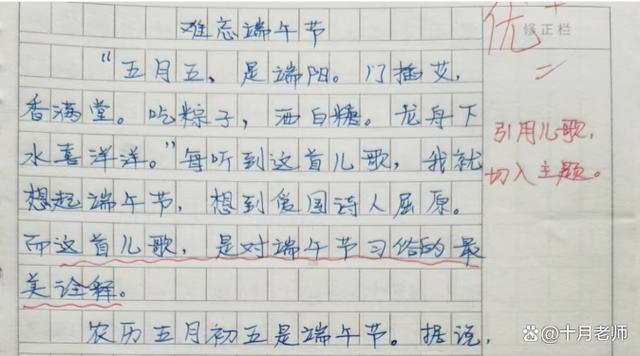 难忘端午节
优+
修正栏
“五月五,是端阳。门插艾,
香满堂。吃粽子,洒白糖。龙舟下
水喜洋洋。”每听到这首儿歌,我就
想起端午节,想到爱国诗人屈原。
而这首儿歌,是对端午节习俗的最
美诠释。
农历五月初五是端午节。据说,
引用儿歌,
切入主题。
@十月老师